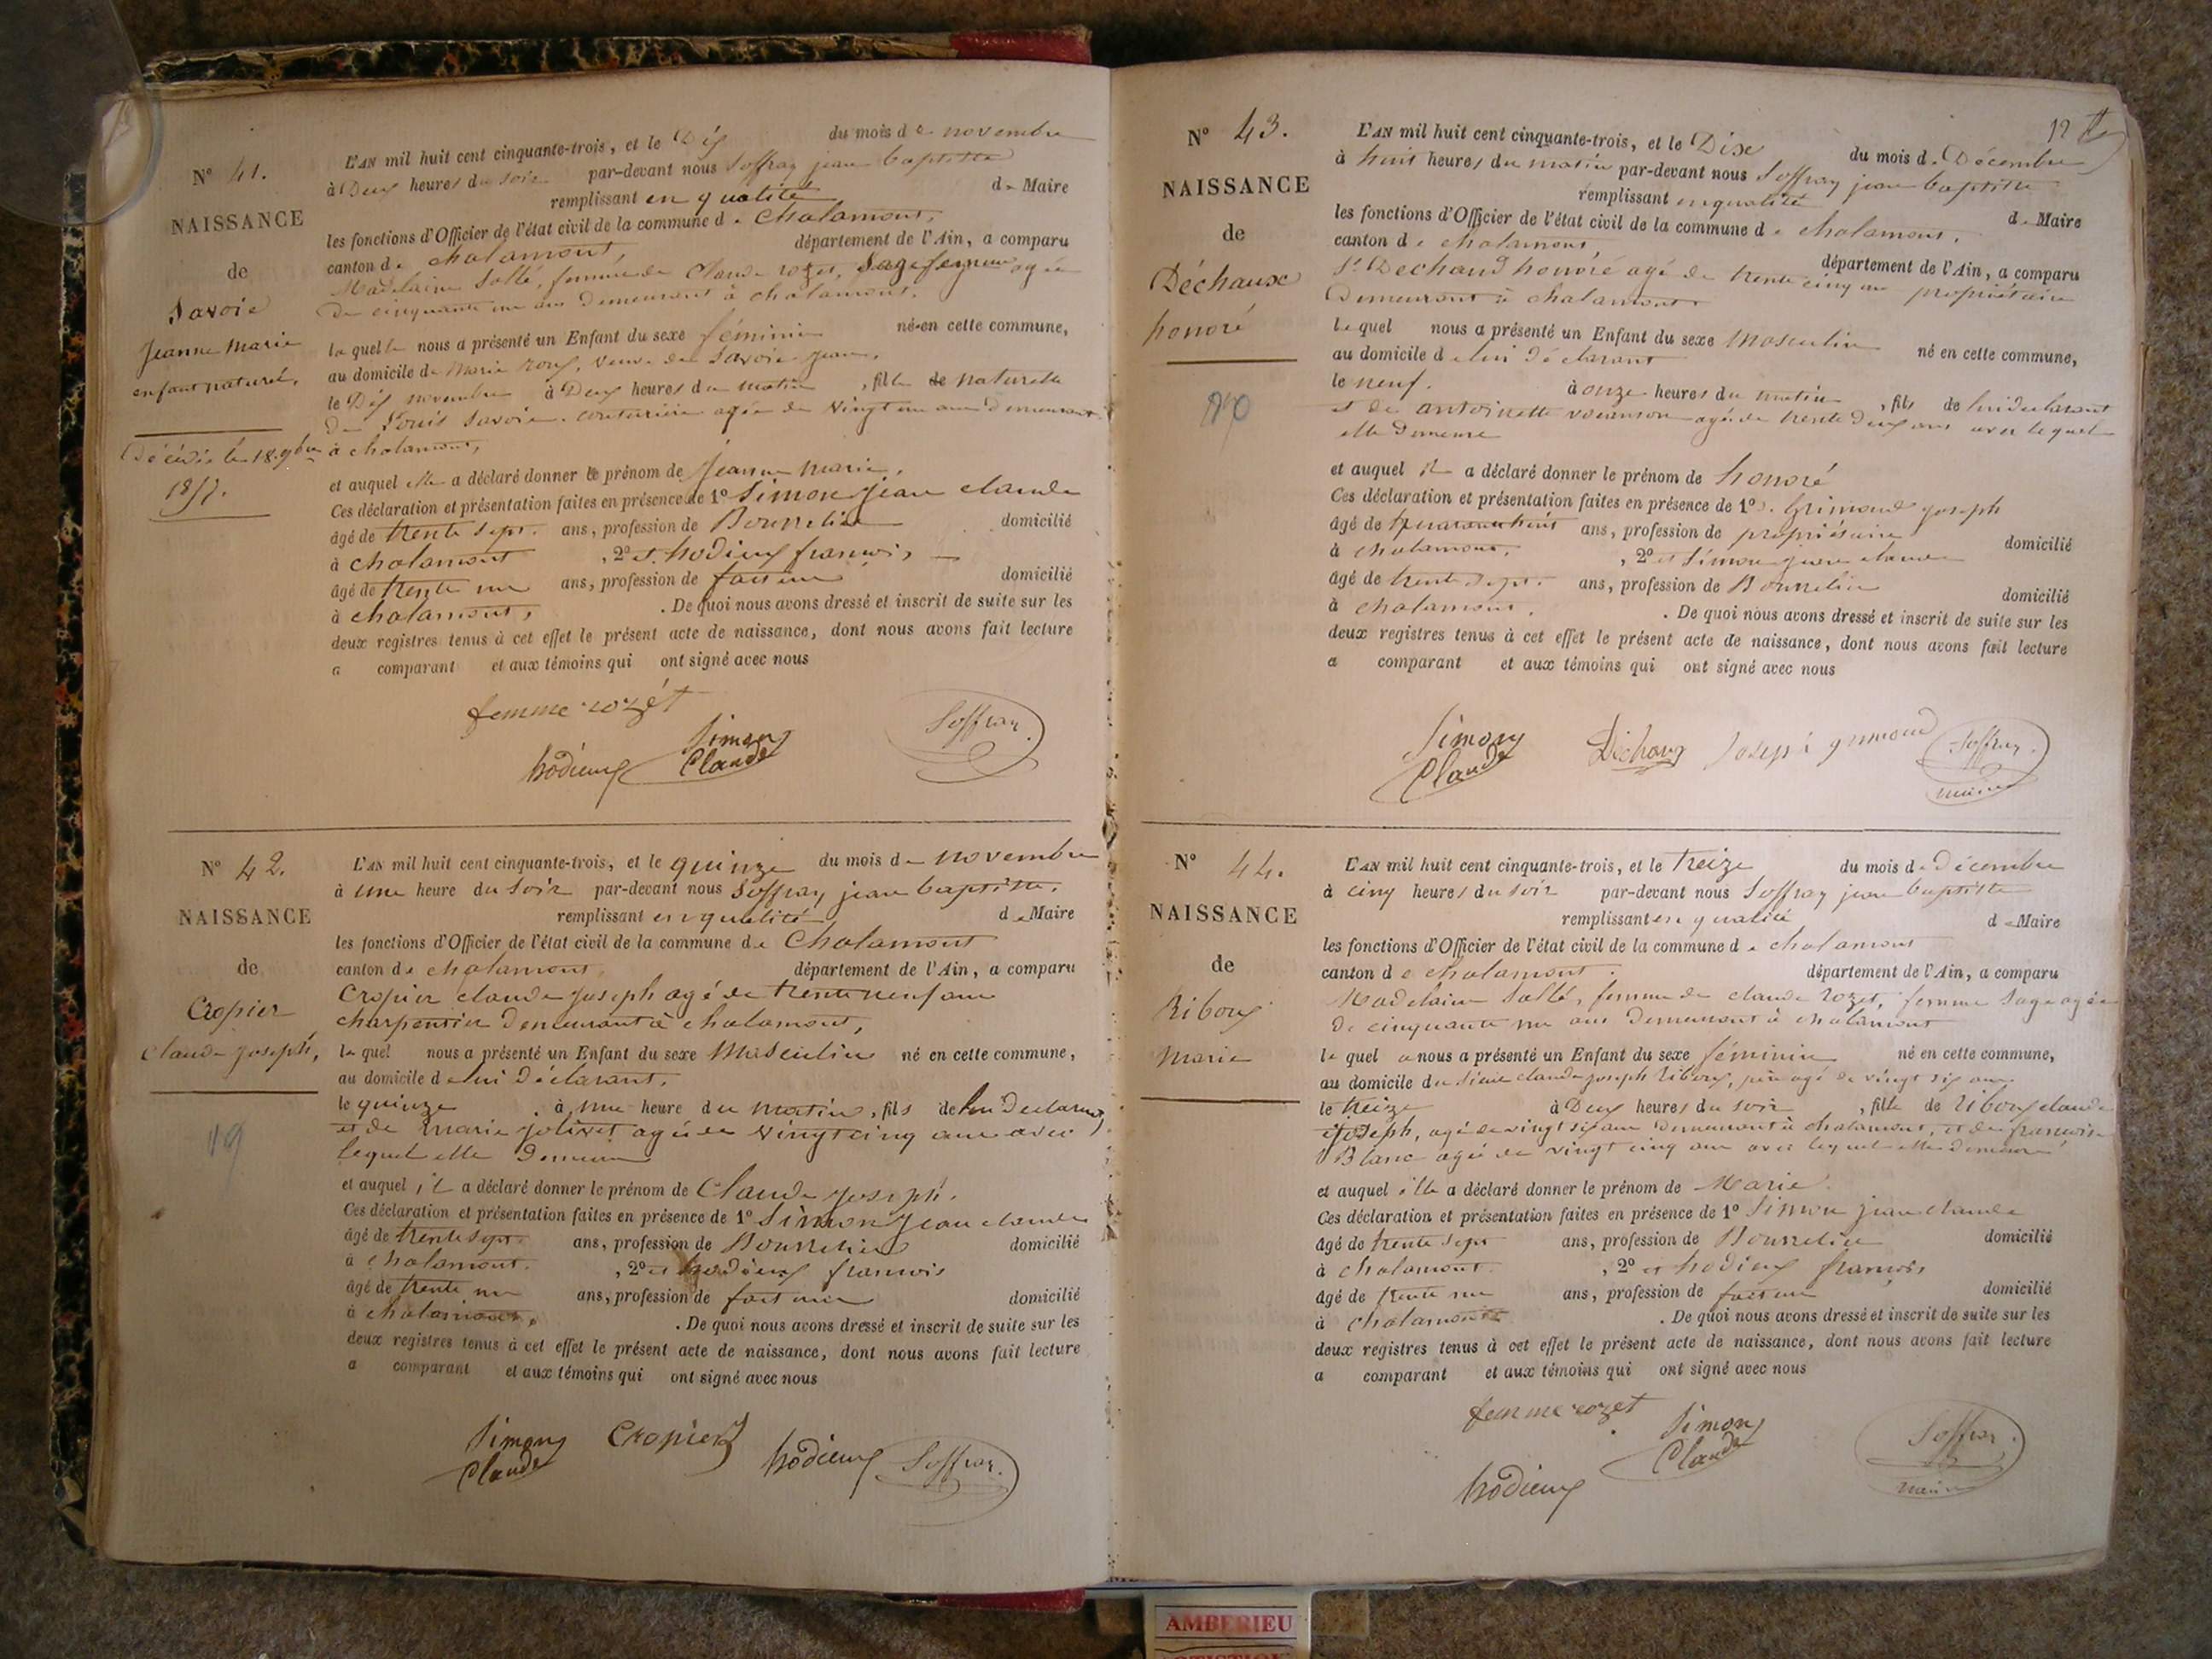 N° 41.
NAISSANCE
de
Savoie
Jeanne Marie
enfant naturel,
Décédée le 18. 9bre
L'AN mil huit cent cinquante-trois, et le Dix du mois de novembre
à Deux heures du soir par-devant nous Soffray jean baptiste
remplissant en qualité de Maire
les fonctions d'Officier de l'état civil de la commune de Chalamont,
canton de chalamont, département de l'Ain, a comparu
Madelaine Sallé, femme de Claude rozet, Sage femme agée
De cinquante un ans demeurant à chalamont.
laquelle nous a présenté un Enfant du sexe féminin né en cette commune,
au domicile de Marie roux, veuve de Savoie jean,
le Dix novembre à Deux heures du matin, fille de naturelle
De Louis Savoie couturière agée de vingt un ans demeurant
à chalamont,
et auquel elle a déclaré donner le prénom de Jeanne Marie,
Ces déclaration et présentation faites en présence de 1° Simon Jean claude
âgé de trente sept. ans, profession de Bourrelier domicilié
à chalamont, 2° et hodieux francois
âgé de trente un ans, profession de facteur domicilié
à chalamont, . De quoi nous avons dressé et inscrit de suite sur les
deux registres tenus à cet effet le présent acte de naissance, dont nous avons fait lecture
a comparant et aux témoins qui ont signé avec nous
femme rozét
hodieux Simon Claude Soffray
N° 42.
NAISSANCE
de
Cropier
Claude joseph,
19
L'AN mil huit cent cinquante-trois, et le quinze du mois de novembre
à une heure du soir par-devant nous Soffray jean baptiste,
remplissant en qualité de Maire
les fonctions d'Officier de l'état civil de la commune de Chalamont
canton de chalamont, département de l'Ain, a comparu
Cropier claude joseph agé de trente neuf ans
charpentier demeurant à chalamont,
lequel nous a présenté un Enfant du sexe Masculin né en cette commune,
au domicile de lui Déclarant,
le quinze à une heure du matin, fils de lui Declarant
et de marie jolivet agée de vingt cinq ans avec
lequel elle Demeure
et auquel il a déclaré donner le prénom de Claude joseph.
Ces déclaration et présentation faites en présence de 1° Simon Jean claude
âgé de trente sept ans, profession de Bourrelier domicilié
à Chalamont. , 2° et hodieux francois
âgé de trente un ans, profession de facteur domicilié
à chalamont, . De quoi nous avons dressé et inscrit de suite sur les
deux registres tenus à cet effet le présent acte de naissance, dont nous avons fait lecture
a comparant et aux témoins qui ont signé avec nous
Simon Claude Cropier hodieux Soffray
12
N° 43.
NAISSANCE
de
Déchaux
honoré
L'AN mil huit cent cinquante-trois, et le Dix du mois de Décembre
à huit heures du matin par-devant nous Soffray jean baptiste
remplissant en qualité de Maire
les fonctions d'Officier de l'état civil de la commune de chalamont,
canton de chalamont département de l'Ain, a comparu
Sr Dechaud honoré agé de trente cinq ans propriétaire
Demeurant à chalamont
lequel nous a présenté un Enfant du sexe Masculin né en cette commune,
au domicile de lui déclarant
le neuf. à onze heures du matin, fils de lui declarant
et de antoinette vocanson agée de trente deux ans avec lequel
elle Demeure
et auquel il a déclaré donner le prénom de honoré
Ces déclaration et présentation faites en présence de 1° Grimaud joseph
âgé de ans, profession de propriétaire domicilié
à chalamont. , 2° et Simon jean claude
âgé de trente sept. ans, profession de Bourrelier domicilié
à chalamont. . De quoi nous avons dressé et inscrit de suite sur les
deux registres tenus à cet effet le présent acte de naissance, dont nous avons fait lecture
a comparant et aux témoins qui ont signé avec nous
Simon Claude Déchaux Joseph grimaud Soffray maire
N° 44.
NAISSANCE
de
Riboux
Marie
L'AN mil huit cent cinquante-trois, et le treize du mois de Décembre
à cinq heures du soir par-devant nous Soffray jean baptiste
remplissant en qualité de Maire
les fonctions d'Officier de l'état civil de la commune de chalamont
canton de chalamont. département de l'Ain, a comparu
Madelaine Sallé, femme de claude rozet, femme sage agée
de cinquante un ans Demeurant à chalamont
lequel a nous a présenté un Enfant du sexe féminin né en cette commune,
au domicile du sieur claude joseph riboux, père agé de vingt six ans
le treize à Deux heures du soir, fille de riboux claude
joseph, agé de vingt six ans Demeurant à chalamont, et de francoise
Blanc agée de vingt cinq ans avec lequel elle demeure
et auquel elle a déclaré donner le prénom de Marie.
Ces déclaration et présentation faites en présence de 1° Simon jean claude
âgé de trente sept ans, profession de Bourrelier domicilié
à chalamont. , 2° et hodieux francois
âgé de trente un ans, profession de facteur domicilié
à chalamont . De quoi nous avons dressé et inscrit de suite sur les
deux registres tenus à cet effet le présent acte de naissance, dont nous avons fait lecture
a comparant et aux témoins qui ont signé avec nous
femme rozet
hodieux Simon Claude Soffray maire
AMBERIEU